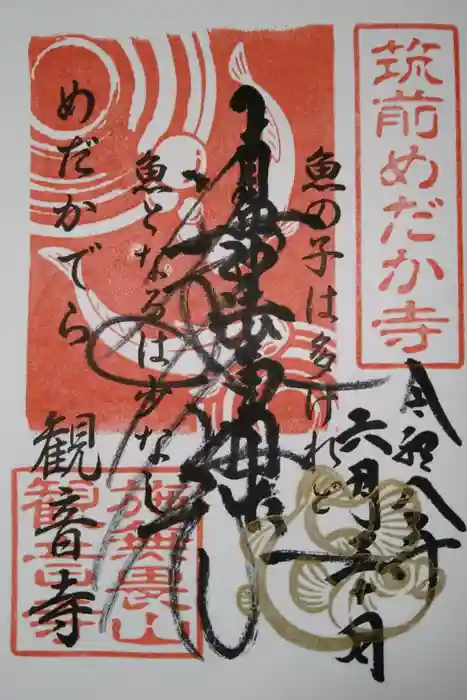 筑前めだか寺
令和八年
六月
魚の子は多けれど
魚となるは少なし
めだかでら
観音寺
施無畏山
観音寺